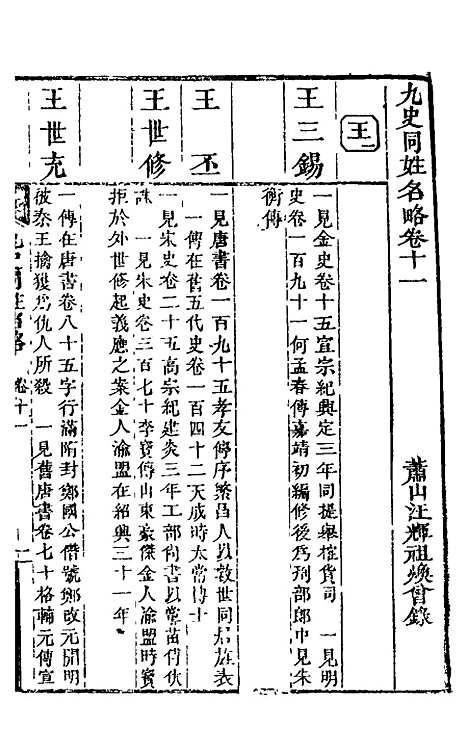 九史同姓名略卷十一
蕭山汪輝祖煥曾錄
王二
王三錫
一見金史卷十五宣宗紀興定三年同提舉榷貨司　一見明
史卷一百九十一何孟春傳嘉靖初編修後爲刑部郎中見朱
衡傳
王丕
一見唐書卷一百九十五孝友傳序繁昌人以數世同居旌表
一傳在舊五代史卷一百四十二天成時太常博士
王世修
一見宋史卷二十五高宗紀建炎三年工部侍書以黨苗傅伏
誅　一見宋史卷三百七十李寶傳山東豪傑金人渝盟時寶
拒於外世修起義應之案金人渝盟在紹興三十一年
王世充
一傳在唐書卷八十五字行滿隋封鄭國公僭號鄭改元開明
彼泰王擒獲爲仇人所殺　一見舊唐書卷七十格輔元傳宣
九史同姓名略　卷十一　一